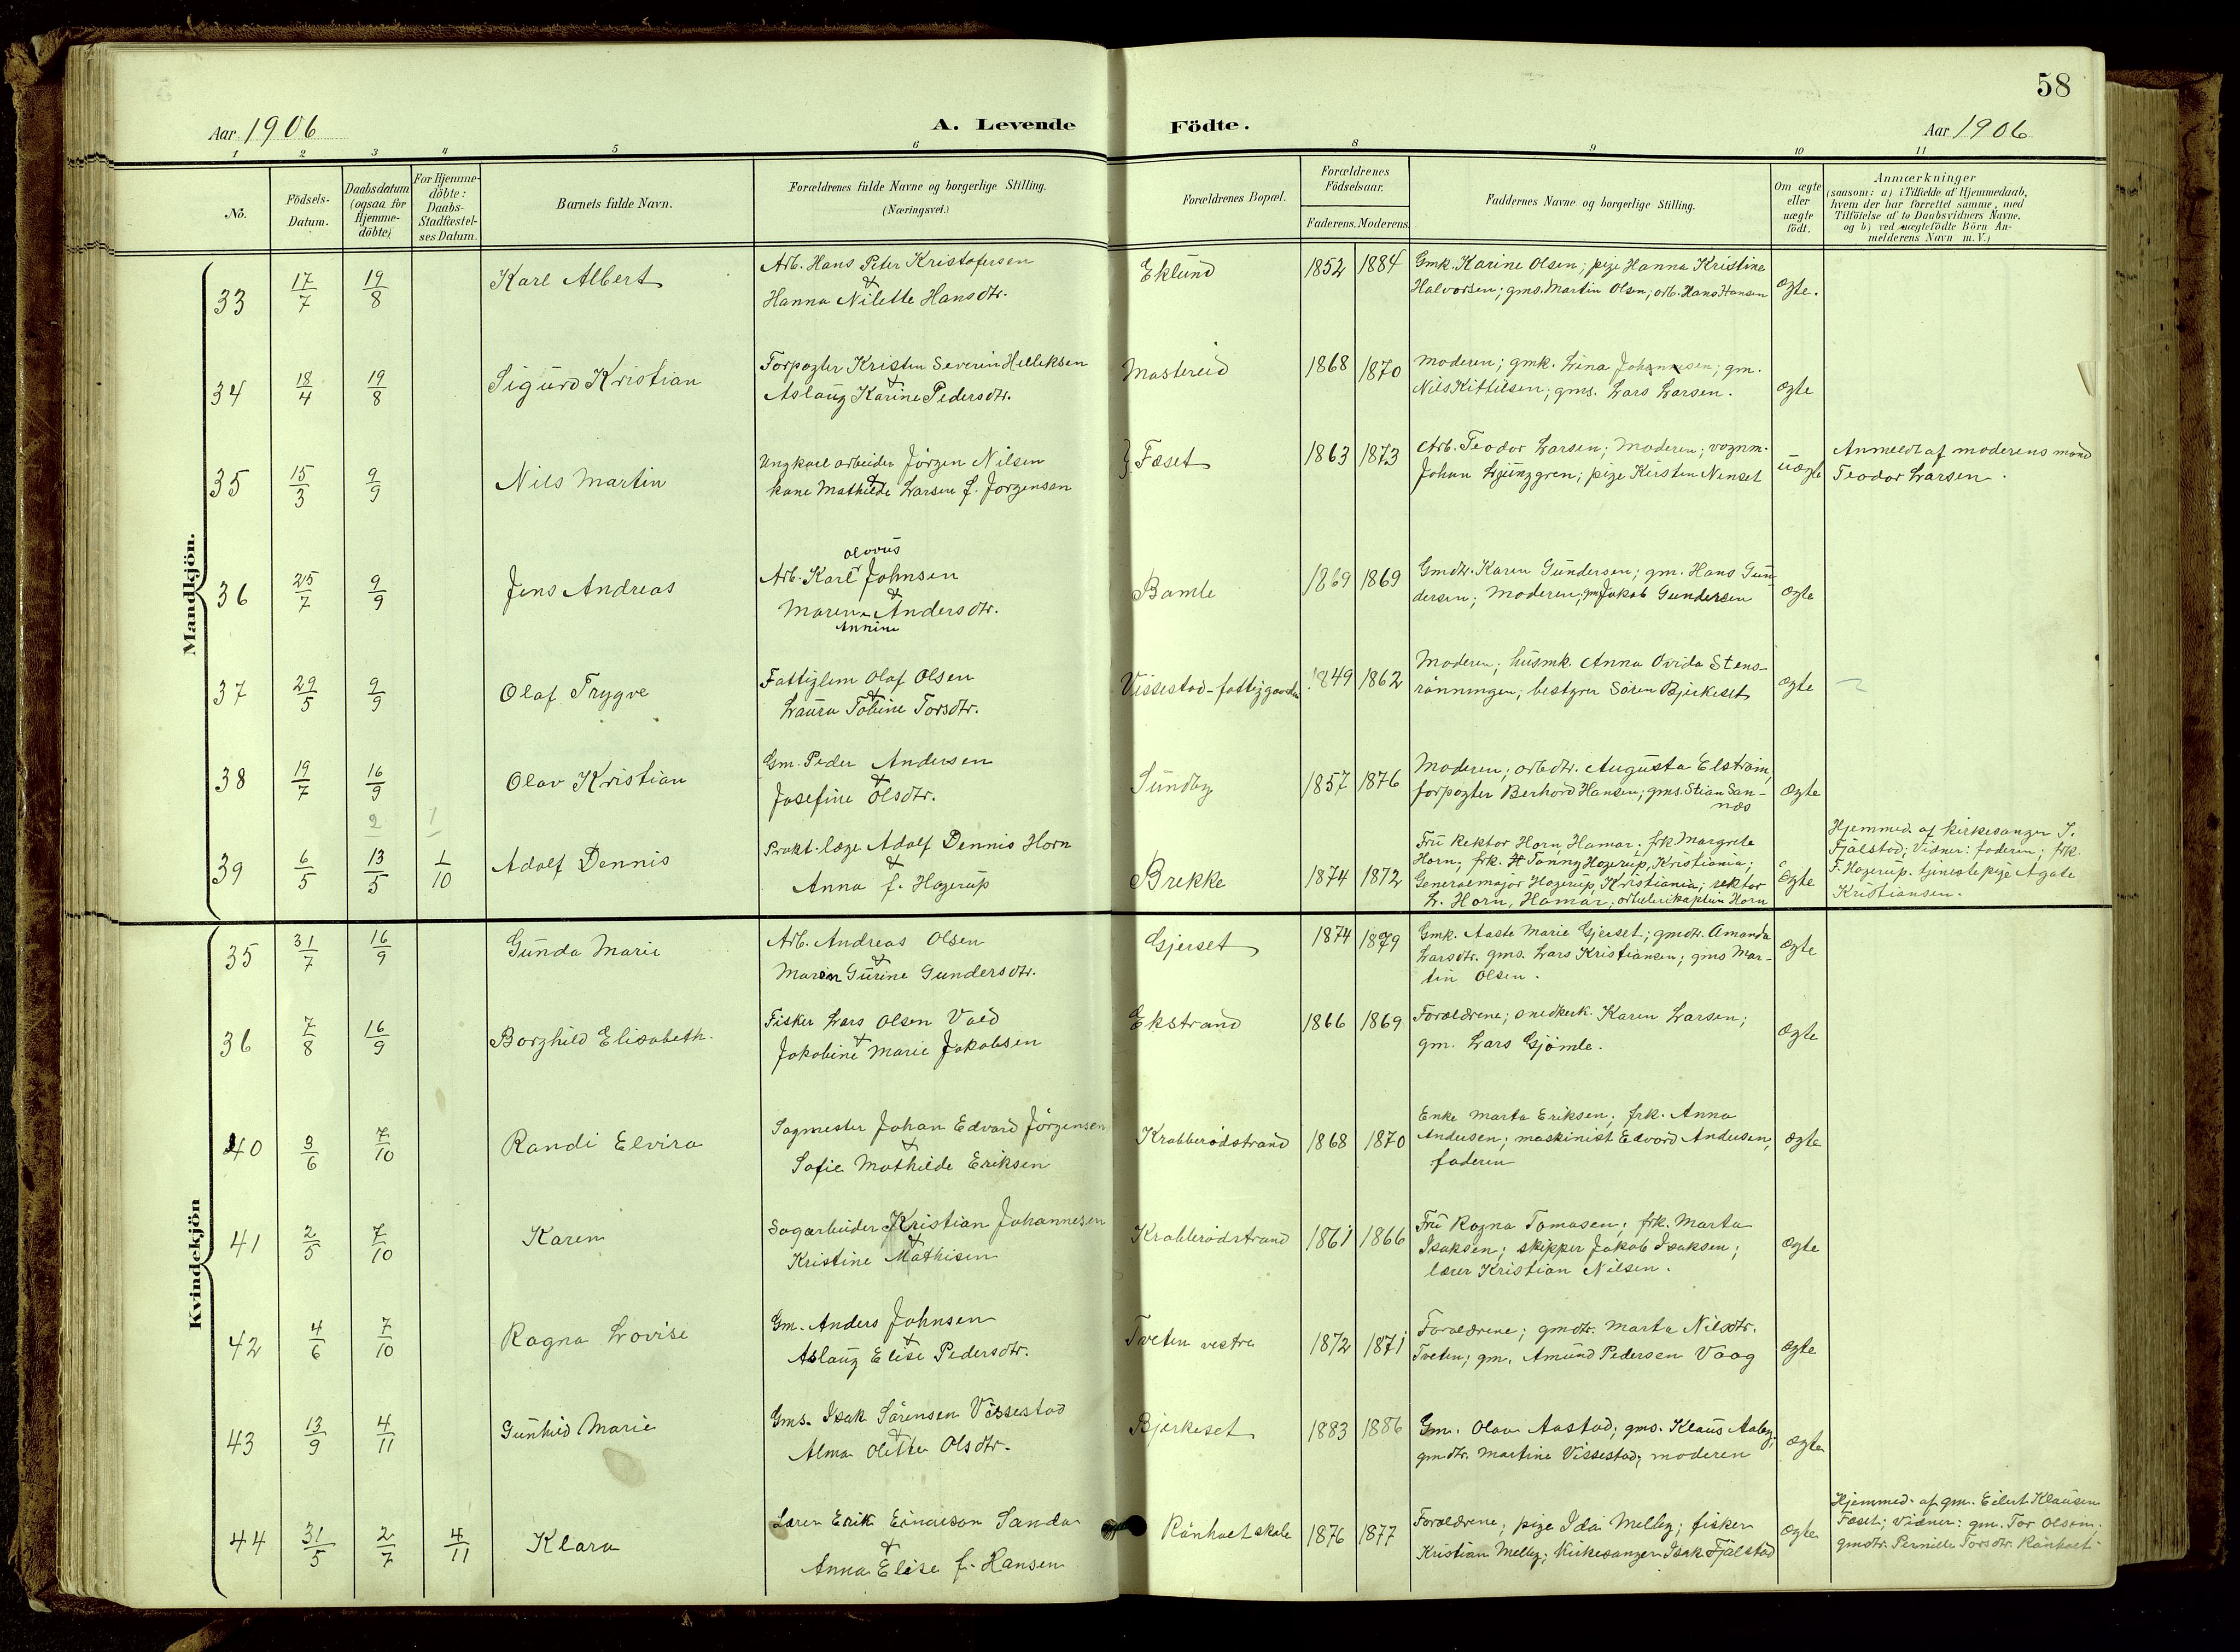 58
Aar 1906
A. Levende Födte.
Aar 1906
1 2 3 4 5 6 8 9 10 11
No.
Födsels-Datum.
Daabsdatum (ogsaa for Hjemme-döbte)
For Hjemme-döbte: Daabs-Stadfæstel-ses Datum.
Barnets fulde Navn.
Forældrenes fulde Navne og borgerlige Stilling.
(Næringsvei.)
Forældrenes Bopæl.
Forældrenes Födselsaar.
Faderens. Moderens.
Faddernes Navne og borgerlige Stilling.
Om ægte eller uægte födt.
Anmærkninger
(saasom: a) i Tilfælde af Hjemmedaab,
hvem der har forrettet samme, med
Tilföielse af to Daabsvidners Navne.
og b) ved uægtefödte Börn An-
melderens Navn m. V.)
Mandkjön.
33 17/7 19/8 Karl Albert
Arb. Hans Peter Kristofersen
&
Hanna Nilette Hansdtr.
Eklund 1852 1884
Gmk. Karine Olsen; pige Hanna Kristine
Halvorsen; gms. Martin Olsen; arb. Hans Hansen
ægte.
34 18/4 19/8 Sigurd Kristian
Forpagter Kristen Severin Helleksen
&
Aslaug Karine Pedersdtr.
Mastereid 1868 1870
Moderen; gmk. Lina Johannesen; gm.
Nils Kittilsen; gms. Lars Larsen.
ægte
35 15/3 9/9 Nils Martin
Ungkarl arbeider Jörgen Nilsen
&
kone Mathilde Larsen f. Jorgensen
} Fæset 1863 1873
Arb. Teodor Larsen; Moderen; vognm.
Johan Ljunggren; pige Kirstin Nenset
uægte
Anmeldt af moderens mand
Teodor Larsen.
36 25/7 9/9 Jens Andreas
olovus
Arb. Karl Johnsen
&
Maren Andersdtr.
Annine
Bamle 1869 1869
Gmdtr. Karen Gundersen; gm. Hans Gun
dersen; Moderen; gm. Jakob Gundersen
ægte
37 29/5 9/9 Olaf Trygve
Fattiglem Olaf Olsen
&
Laura Tobine Torsdtr.
Vissestad-fattiggaarden 1849 1862
Moderen; husmk. Anna Ovida Stens-
rönningen; bestyrer Sören Bjerkeset
ægte
38 19/7 16/9 Olav Kristian
Gm. Peder Andersen
&
Josefine Olsdtr.
Sundby 1857 1876
Moderen; arbdtr. Augusta Elström,
forpagter Berhard Hansen; gms. Stian San-
næs
ægte
2 1
39 6/5 13/5 1/10 Adolf Dennis
Prakt. læge Adolf Dennis Horn
&
Anna f. Hagerup
Brekke 1874 1872
Fru Rektor Horn, Hamar; frk Margrete
Horn; frk. Fanny Hagerup, Kristiania;
Generalmajor Hagerup, Kristiania; rektor
L. Horn, Hamar; artillerikaptein Horn
ægte
Hjemmed. af kirkesanger I.
Fjälstad; Vidner: faderen; frk.
F. Hagerup. tjenestepige Agate
Kristiansen.
Kvindekjön
35 31/7 16/9 Gunda Marie
Arb. Andreas Olsen
&
Maren Gurine Gundersdtr.
Gjerset 1874 1879
Gmk. Aaste Marie Gjerset; gmdtr. Amanda
Larsdtr. gms. Lars Kristiansen; gms Mar-
tin Olsen.
ægte
36 7/8 16/9 Borghild Elisabeth.
Fisker Lars Olsen Vold
&
Jakobine Marie Jakobsen
Ekstrand 1866 1869
Forældrene; snedkerk. Karen Larsen;
gm. Lars Gjömle.
ægte
40 3/6 7/10 Randi Elvira
Sagmester Johan Edvard Jörgensen
&
Sofie Mathilde Eriksen
Krabberödstrand 1868 1870
Enke Marta Eriksen; frk. Anna
Andersen; maskinist Edvard Andersen,
faderen
ægte
41 2/5 7/10 Karen
Sagarbeider Kristian Johannesen
&
Kristine Mathisen
Krabberödstrand 1861 1866
Fru Ragna Tomasen; frk. Marta
Isaksen; skipper Jakob Isaksen;
lærer Kristian Nilsen.
ægte
42 4/6 7/10 Ragna Lovise
Gm. Anders Johnsen
&
Aslaug Elise Pedersdtr.
Tveten vestre 1872 1871
Forældrene; gmdtr. Marta Nilsdtr.
Tveten; gm. Amund Pedersen Vaag
ægte
43 13/9 4/11 Gunhild Marie
Gms. Isak Sörensen Vissestad
&
Alma Olette Olsdtr.
Bjerkeset 1883 1886
Gm. Olav Aastad; gms. Klaus Aaby;
gmdtr. Martine Vissestad; moderen
ægte
44 31/5 2/7 4/11 Klara
Lærer Erik Einarson Sanda
&
Anna Elise f. Hansen
Rönholt skole 1876 1877
Forældrene; pige Ida Melby; fisker
Kristian Melby; Kirkesanger Isak Fjälstad
ægte
Hjemmed. af gm. Eilert Klausen
Fæset; vidner: gm. Tor Olsen.
gmdtr. Pernille Torsdtr. Rönholt.